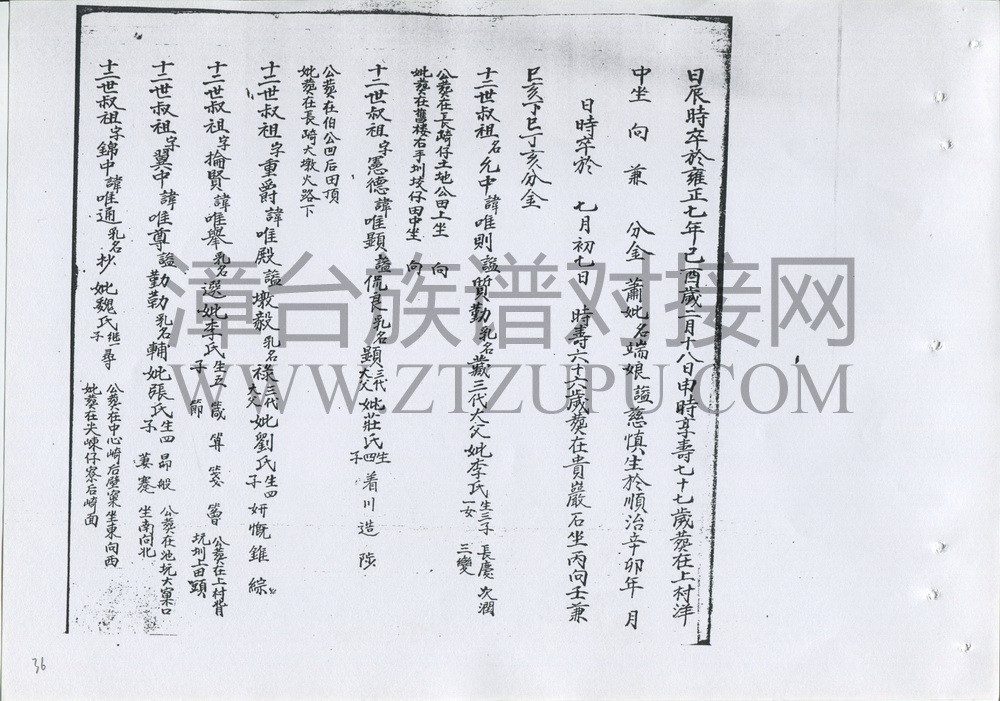 日辰時卒於雍正七年己酉歲二月十八日申時享壽七十七歲葬在上村洋
中坐 向 兼 分金 蕭妣名端娘諡慈慎生於順治辛卯年 月
日時卒於 七月初七日 時壽六十六歲葬在貴巖石坐丙向壬兼
巳亥丁巳丁亥分金
十二世叔祖名允中諱唯則諡質勤乳名藏三代大父妣李氏生三子一女 長慶 次潤 三變
公葬在長崎仔土地公田上坐 向
妣葬在舊樓右手圳墘仔田中坐 向
十二世叔祖字憲德諱唯顕諡侃良乳名題三代大父妣莊氏生四子 着 川 造 陟
公葬在伯公凹后田頂
妣葬在長崎大墩火路下
十二世叔祖字重爵諱唯殿諡墩毅乳名祿三代大父妣劉氏生四子 妍 慨 錐 綜
十二世叔祖字掄賢諱唯舉乳名選妣李氏生五子 箴 算 箋 節 公葬在上村背坑圳上田頭
十二世叔祖字翼中諱唯尊諡勤勤乳名輔妣張氏生四子 昂 般 蹇 公葬在池坑大窠口坐南向北
十二世叔祖字錦中諱唯通乳名抄妣魏氏继子尋 公葬在中心崎后壁窠坐東向西
妣葬在尖崠仔寮后崎面
36
漳台族谱对接网
WWW.ZTZUPU.COM